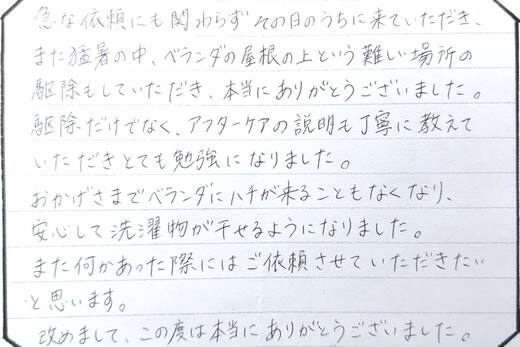 急な依頼にも関わらずその日のうちに来ていただき、
また猛暑の中、ベランダの屋根の上という難しい場所の
駆除もしていただき、本当にありがとうございました。
駆除だけでなく、アフターケアの説明も丁寧に教えて
いただきとても勉強になりました。
おかげさまでベランダにハチが来ることもなくなり、
安心して洗濯物が干せるようになりました。
また何かあった際にはご依頼させていただきたい
と思います。
改めまして、この度は本当にありがとうございました。